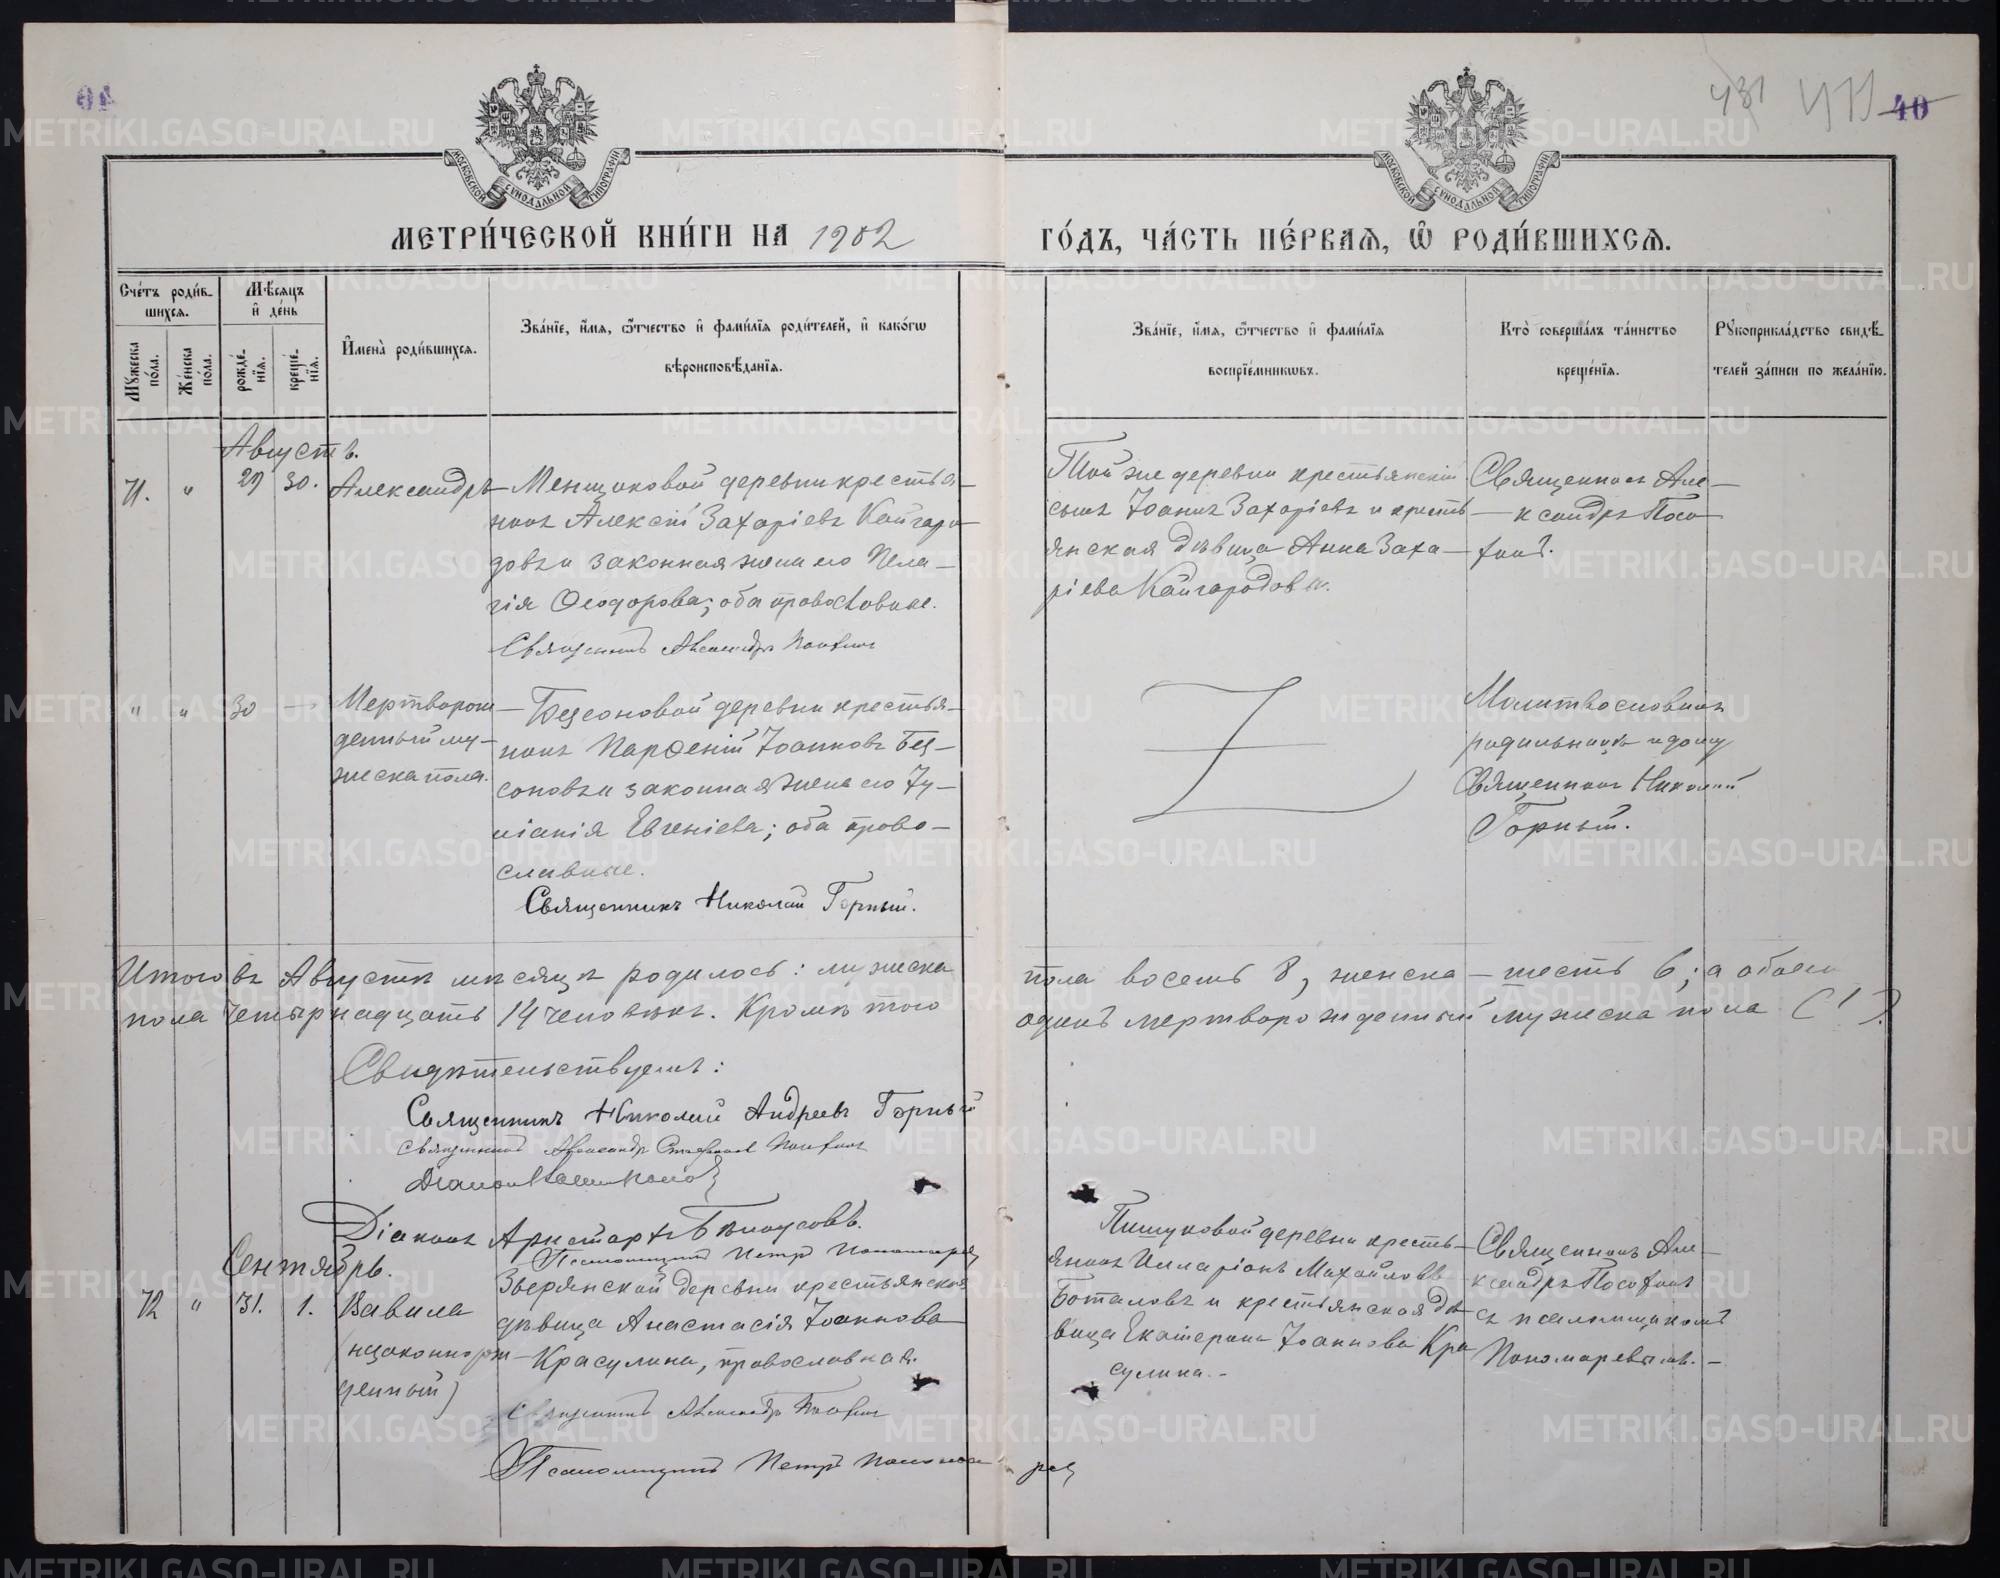 431 411 40
МОСКОВСКОЙ СѴНОДАЛЬНОЙ ТИПОГРАФІИ
МОСКОВСКОЙ СѴНОДАЛЬНОЙ ТИПОГРАФІИ
МЕТРИ́ЧЕСКОЙ КНИ́ГИ НА 1902
ГО́ДЪ, ЧА́СТЬ ПЕ́РВАѦ, Ѽ РОДИ́ВШИХСѦ.
Сче́тъ роди́в-
шихсѧ.
Мѣ́сѧцъ
и҆ де́нь
Мꙋ́жеска по́ла.
Же́нска по́ла.
рожде́-нїѧ.
креще́-нїѧ.
И҆мена̀ роди́вшихсѧ.
Зва́нїе, и҆́мѧ, ѻ҆́тчество и҆ фами́лїѧ роди́телей, и҆ како́гѡ
вѣроисповѣ́данїѧ.
Зва́нїе, и҆́мѧ, ѻ҆́тчество и҆ фами́лїѧ
воспрїе́мникѡвъ.
Кто̀ соверша́лъ та́инство
креще́нїѧ.
Рꙋкоприкла́дство свидѣ́-
телей за́писи по жела́нїю.
Августъ.
71. " 29 30. Александръ
Менщиковой деревни крестья-
нинъ Алексій Захаріевъ Кайгоро-
довъ и законная жена его Пела-
гія Ѳеодорова; оба православные.
Священникъ Александръ
Той же деревни крестьянскій
сынъ Іоаннъ Захаріевъ и кресть-
янская дѣвица Анна Заха-
ріева Кайгородовы.
Священникъ Але-
ксандръ
" " 30 —
Мертворож-
денный му-
жеска пола.
Безсоновой деревни крестья-
нинъ Парѳеній Іоанновъ Без-
соновъ и законная жена его Іу-
ліанія Евгеніева; оба право-
славные.
Священникъ Николай Горный.
Молитвословилъ
родильницѣ и дому
Священникъ Николай
Горный.
Итого въ Августѣ мѣсяцѣ родилось: мужеска пола восемь 8, женска — шесть 6; а обоего
пола четырнадцать 14 человѣкъ. Кромѣ того одинъ мертворожденный мужеска пола (1).
Свидѣтельствуемъ:
Священникъ Николай Андреевъ Горный
Священникъ Александръ
Діаконъ
Діаконъ Аристархъ Бѣлоусовъ.
Псаломщикъ Петръ Пономарев
Сентябрь.
72 " 31. 1. Вавила
(незаконнорож-
денный)
Зверянской деревни крестьянская
дѣвица Анастасія Іоаннова
Красулина, православная.
Священникъ Александръ
Псаломщикъ Петръ Пономарев
Пищуковой деревни кресть-
янинъ Илларіонъ Михайловъ
Боталовъ и крестьянская дѣ-
вица Екатерина Іоаннова Кра-
сулина. -
Священникъ Але-
ксандръ
съ псаломщикомъ
Пономаревымъ. -
METRIKI.GASO-URAL.RU